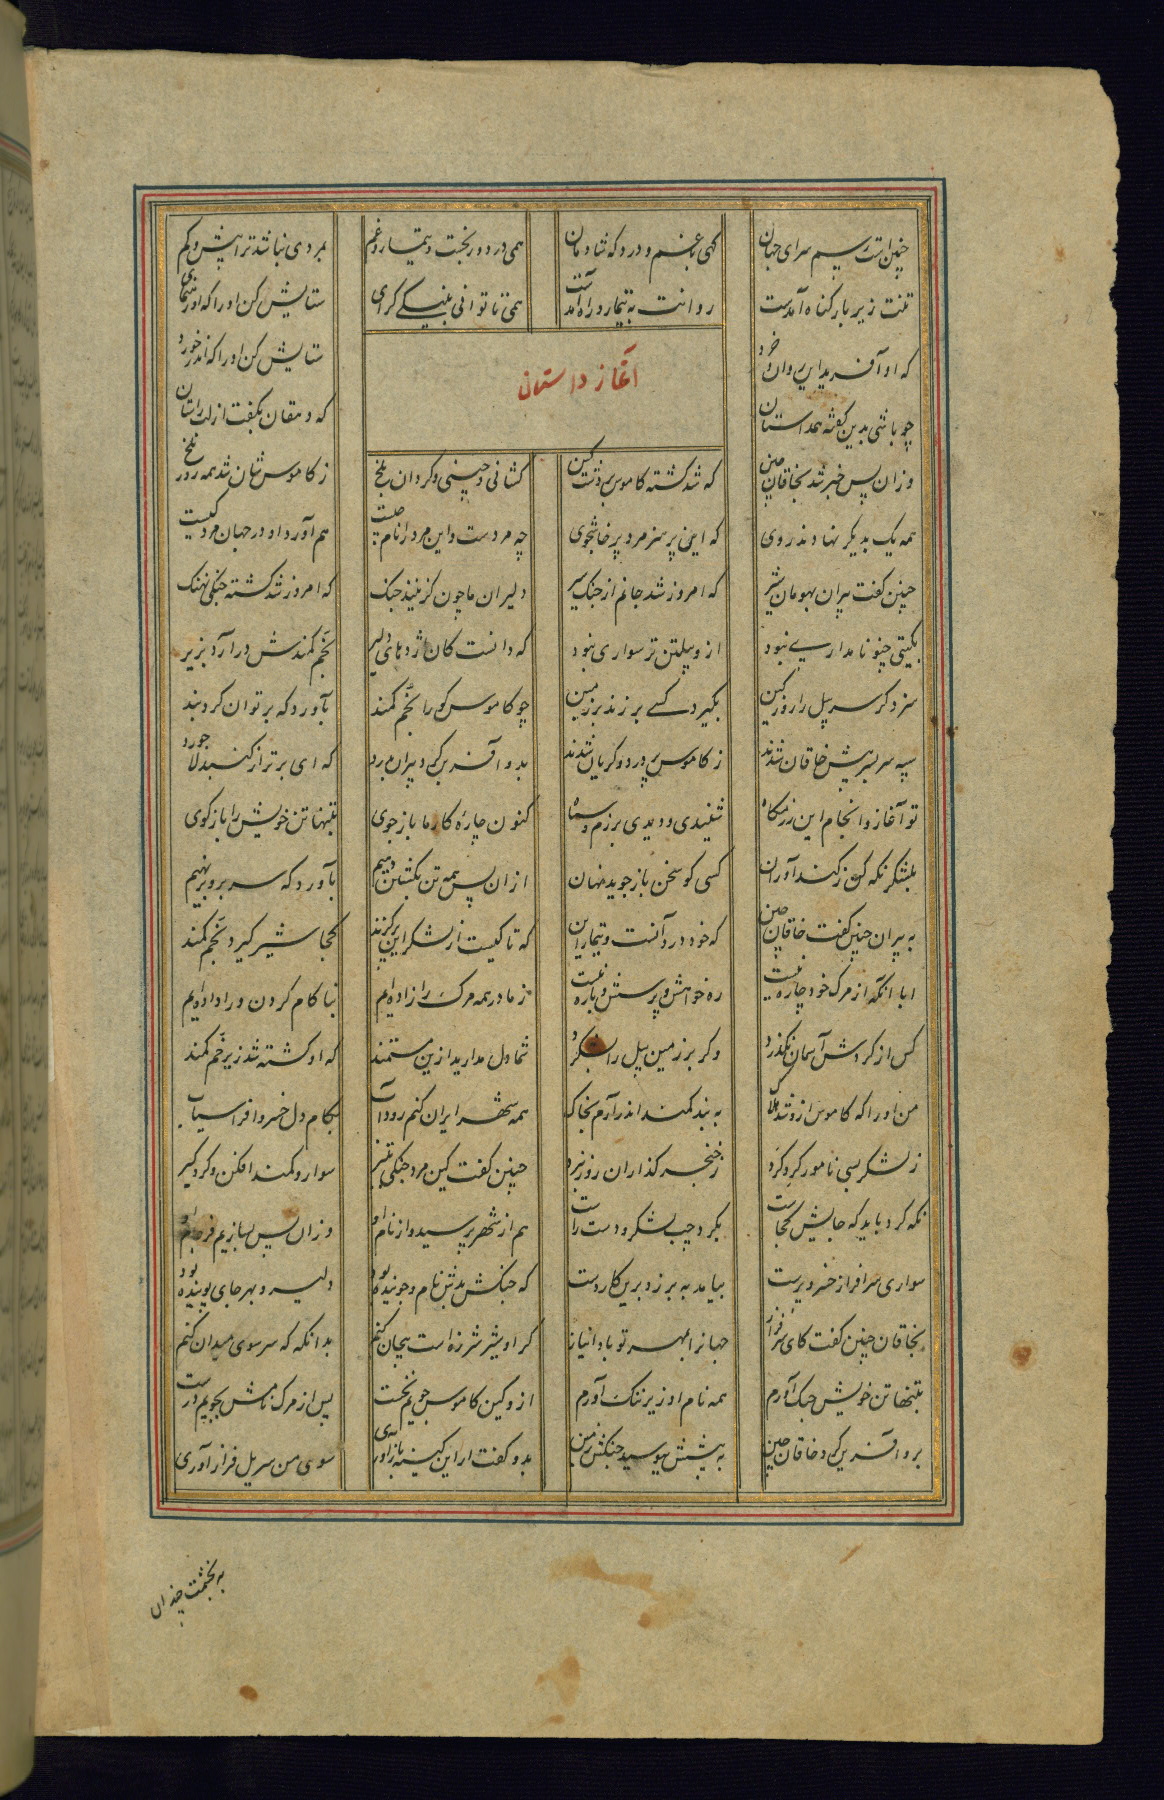 چنین است رسم سرای جهان گهی با غم و درد و گه شادمان همی درد و ربخت و تیمار و غم بمردی نباشد ترا بیش و کم
تنت زیر بار گناه آمدست روانت به تیمار و راه آمدست همی تا توانی بنیکی گرای ستایش کن او را که او رهنمای
که او آفرید این روان و خرد ستایش کن او را که اندر خورد
آغاز داستان
چو باشی بدین گفته همداستان که دهقان بگفت از لب راستان
وزان پس خبر شد بخاقان چین که شد کشته کاموس بر دشت کین کشانی و چینی و گردان بلخ ز کاموس شان شد همه روز تلخ
همه یک بدیگر نهادند روی که این پرهنر مرد پرخاشجوی چه مردست و این مرد را نام چیست هم آورد او در جهان مرد کیست
چنین گفت پیران بهومان شیر که امروز شد جانم از جنگ سیر دلیران ما چون گزینند جنگ که امروز شد کشته جنگی نهنگ
بگیتی چنو نامداری نبود ازو پیلتن تر سواری نبود که دانست کان اژدهای دلیر بخم کمندش در آرد بزیر
سزد گر سر پیل را روز کین بگیرد کسی بر زند بر زمین چو کاموس گو را بخم کمند بآورد گه بر توان کرد بند
سپه سر بسر پیش خاقان شدند ز کاموس پر درد و گریان شدند بدو آفرین کرد پیران به درد که ای برتر از گنبد لاجورد
تو آغاز و انجام این رزمگاه شنیدی و دیدی برزم و سپاه کنون چاره کار ما باز جوی بتنها تن خویش را باز گوی
بلشکر نگه کن ز کندآوران کسی کو سخن باز جوید نهان از آن پس همه تن بکشتن دهیم بآوردگه سر برو برنهیم
به پیران چنین گفت خاقان چین که خود درد آنست و تیمار این که تا کیست از لشکر این پرگزند کجا شیر گیرد بخم کمند
ابا آنکه از مرگ خود چاره نیست ره خواهش و پرستش و باره نیست ز مادر همه مرگ را زاده‌ایم بناکام گردن ورا داده‌ایم
کس از گردش آسمان نگذرد وگر بر زمین پیل را بشکرد شما دل مدارید ازین مستمند که او کشته شد زیر خم کمند
من او را که کاموس ازو شد هلاک به بند کمند اندر آرم بخاک همه شهر ایران کنم رود آب بکام دل خسرو افراسیاب
ز لشکر بسی نامور گرد کرد ز خنجر گذاران روز نبرد چنین گفت کین مرد جنگی بتیر سوار و کمند افکن و گردگیر
نگه کرد باید که جایش کجاست بگرد چپ لشکر و دست راست هم از شهر پرسید و از نام او وزان پس بسازیم فرجام او
سواری سرافراز خسروپرست بیامد به بر زد برین کار دست که چنگش بدش نام و جوینده بود دلیر و بهر جای پوینده بود
بخاقان چنین گفت کای سرفراز جهانرا بمهر تو بادا نیاز گر او شیر شرزه است بیجان کنم بدانگه که سر سوی میدان کنم
بتنها تن خویش جنگ آورم همه نام او زیر ننگ آورم ازو کین کاموس جویم نخست پس از مرگ نامش بجویم درست
برو آفرین کرد خاقان چین به پیشش ببوسید چنگش زمین بدو گفت ار این کینه بازآوری سوی من سر بی‌ل فراز آوری
به بخشمت چندان